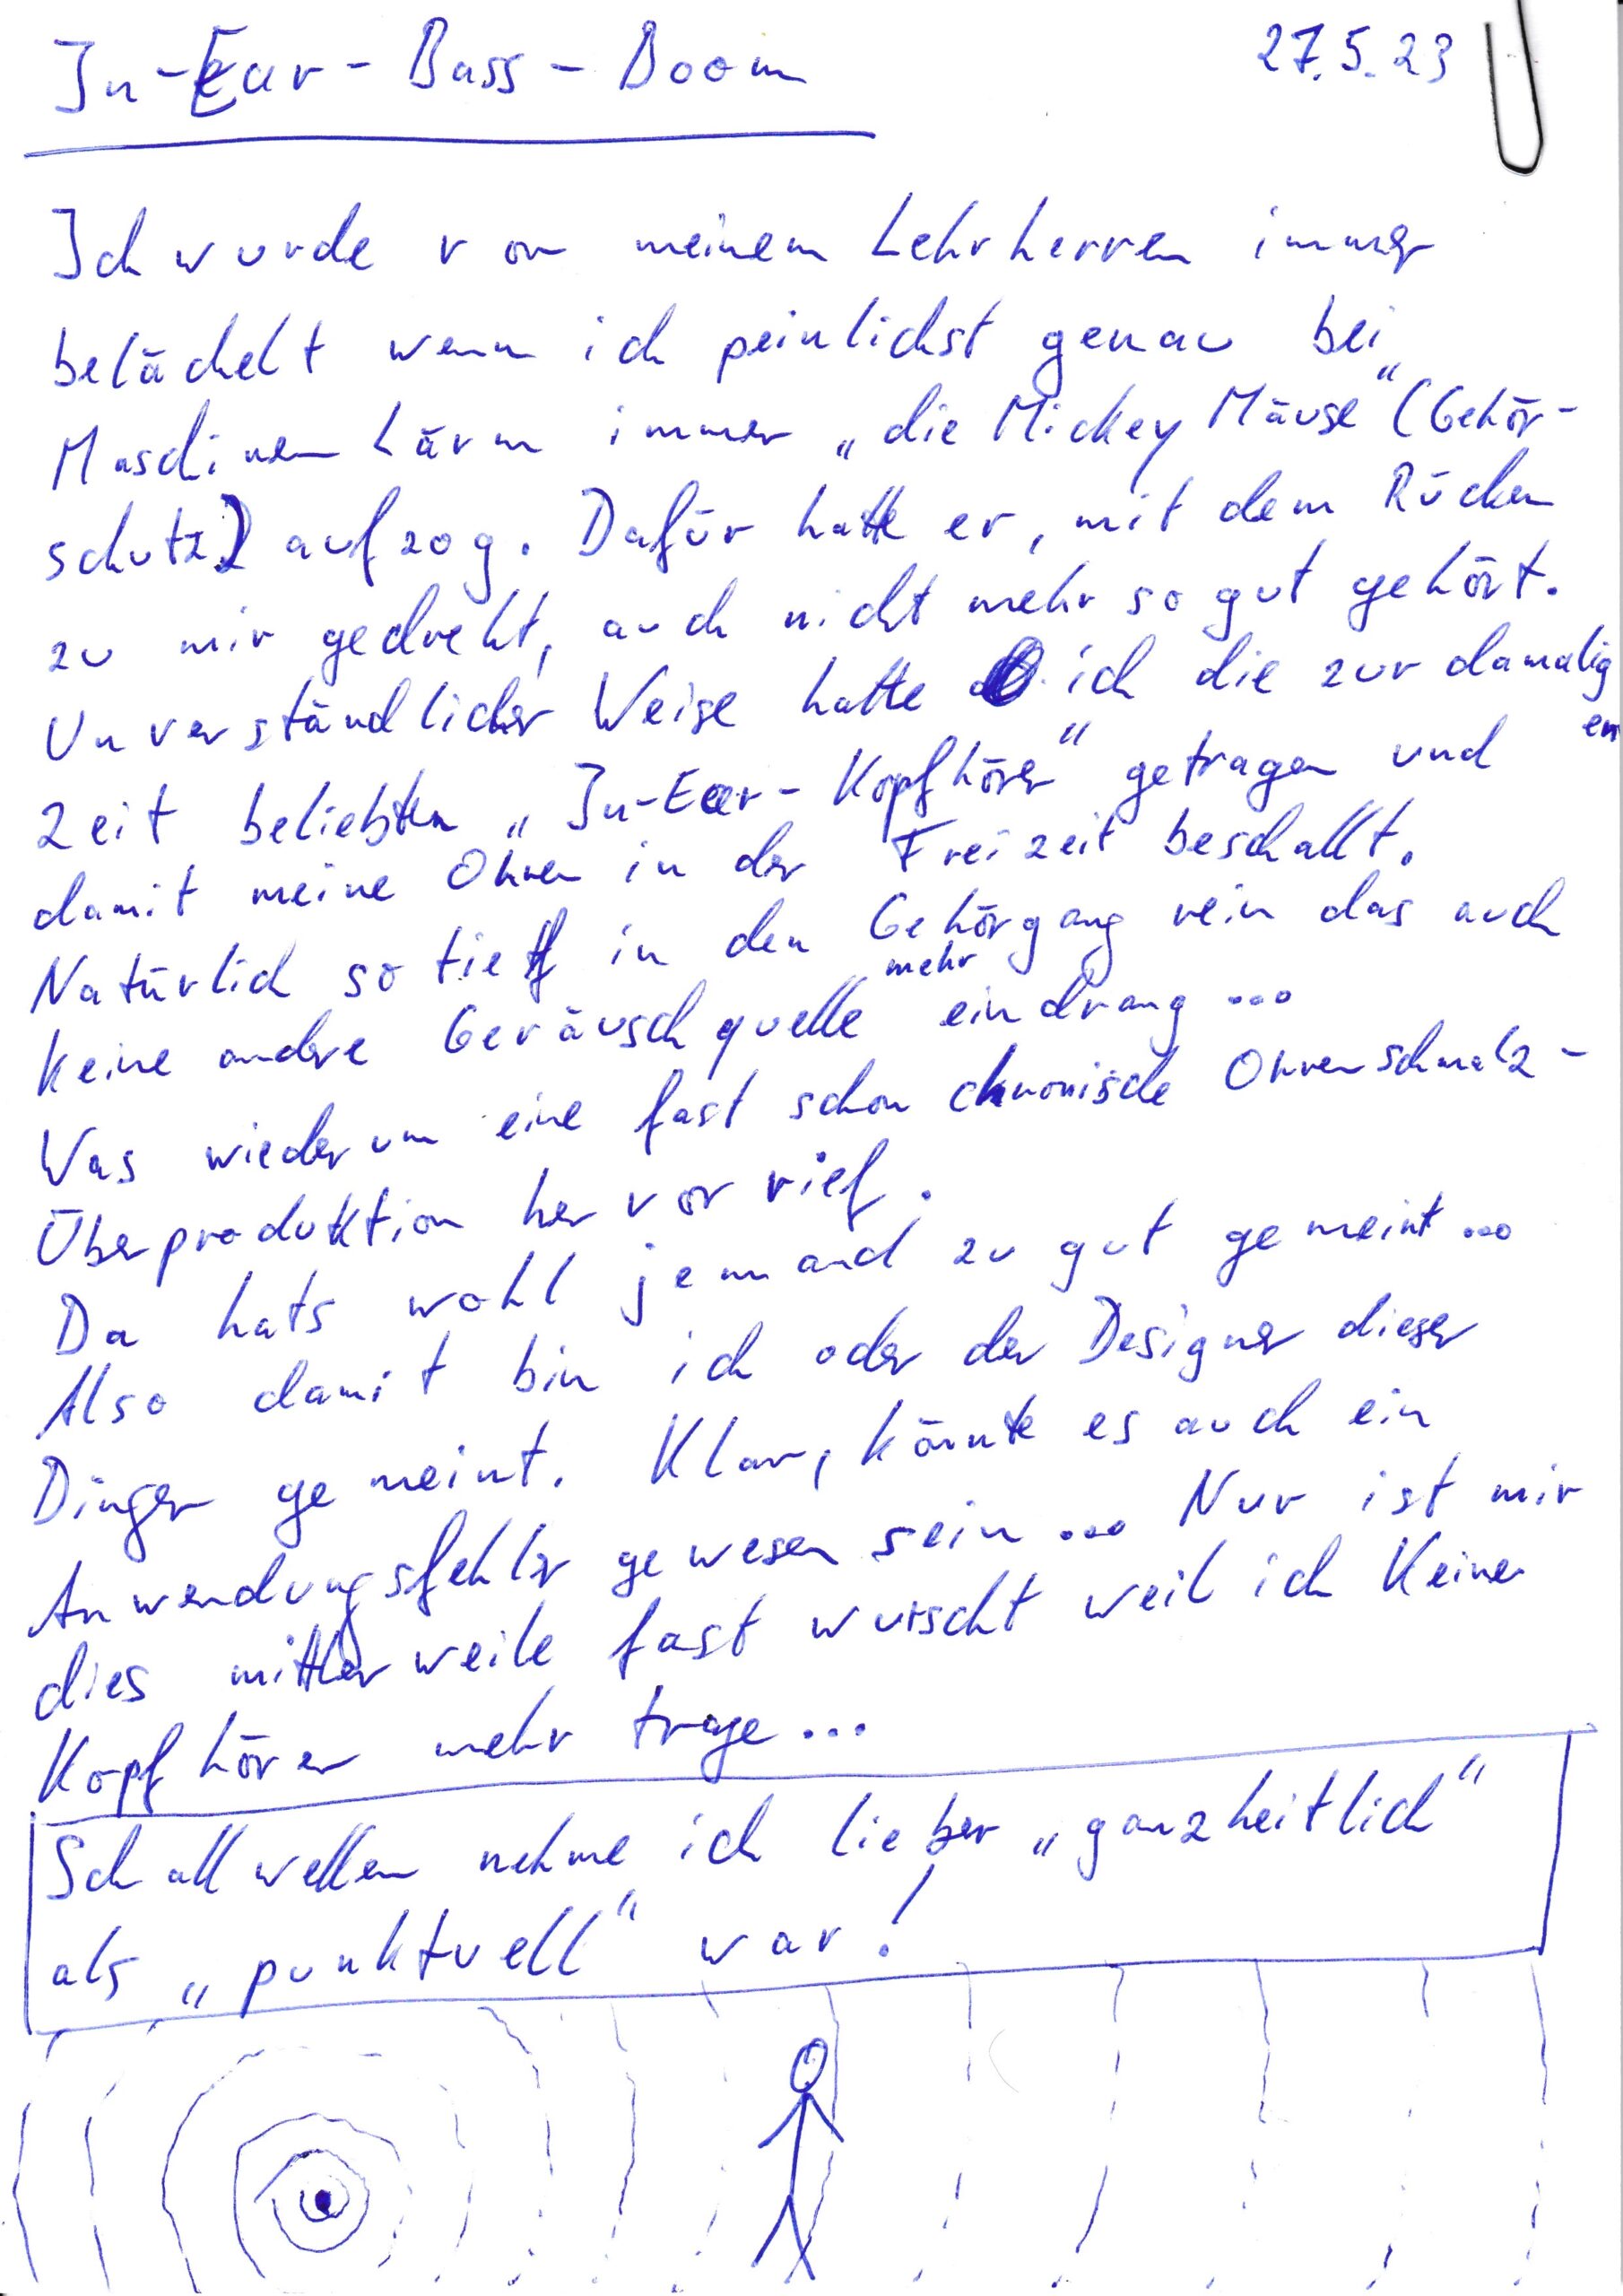 In-Ear-Bass-Boom 27.5.23
Ich wurde von meinem Lehrherren immer
belächelt wenn ich peinlichst genau bei
Maschinen Lärm immer „die Mickey Mäuse“ (Gehör-
schutz) aufzog. Dafür hatte er, mit dem Rücken
zu mir gedreht, auch nicht mehr so gut gehört.
Unverständlicher Weise hatte ich die zur damaligen
Zeit beliebten „In-Ear-Kopfhörer“ getragen und
damit meine Ohren in der Freizeit beschallt.
Natürlich so tief in den Gehörgang rein das auch
keine andere Geräuschquelle mehr eindrang...
Was wiederum eine fast schon chronische Ohrenschmalz-
Überproduktion hervor rief.
Da hats wohl jemand zu gut gemeint...
Also damit bin ich oder der Designer dieser
Dinger gemeint. Klar, könnte es auch ein
Anwendungsfehler gewesen sein... Nur ist mir
dies mittlerweile fast wurscht weil ich Keine
Kopfhörer mehr trage...
Schallwellen nehme ich lieber „ganzheitlich“
als „punktuell“ war!